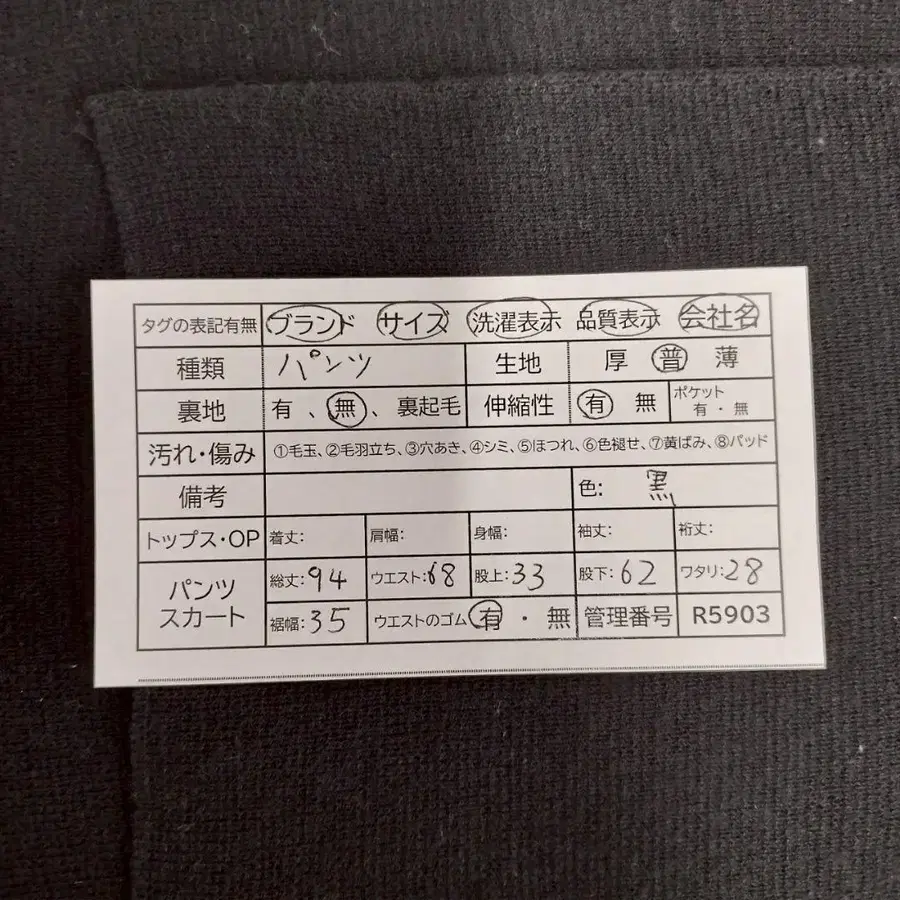 タグの表記有無 ブランド サイズ 洗濯表示 品質表示 会社名
種類 パンツ 生地 厚 普 薄
裏地 有 、 無 、 裏起毛 伸縮性 有 無 ポケット 有 ・ 無
汚れ・傷み ①毛玉、②毛羽立ち、③穴あき、④シミ、⑤ほつれ、⑥色褪せ、⑦黄ばみ、⑧パッド
備考 色: 黒
トップス・OP 着丈: 肩幅: 身幅: 袖丈: 裄丈:
パンツ スカート 総丈:94 ウエスト:68 股上:33 股下:62 ワタリ:28
裾幅:35 ウエストのゴム 有 ・ 無 管理番号 R5903